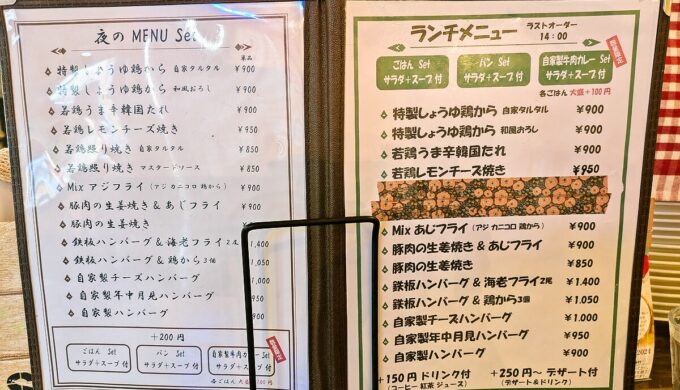 夜の MENU Set
単品
特製しょうゆ鶏から 自家タルタル ¥900
特製しょうゆ鶏から 和風おろし ¥900
若鶏うま辛韓国たれ ¥900
若鶏レモンチーズ焼き ¥950
若鶏照り焼き 自家タルタル ¥850
若鶏照り焼き マスタードソース ¥850
Mix アジフライ (アジ カニコロ 鶏から) ¥900
豚肉の生姜焼き & あじフライ ¥900
豚肉の生姜焼き
鉄板ハンバーグ & 海老フライ2尾 1,400
鉄板ハンバーグ & 鶏から3個 1,050
自家製チーズハンバーグ
自家製年中月見ハンバーグ 950
自家製ハンバーグ 900
+200円
ごはん Set
サラダ+スープ 付
パン Set
サラダ+スープ 付
自家製牛肉カレー Set
サラダ+スープ 付
各ごはん 大盛+100円
ランチメニュー
ラストオーダー
14:00
ごはん Set
サラダ+スープ 付
パン Set
サラダ+スープ 付
自家製牛肉カレー Set
サラダ+スープ 付
各ごはん 大盛+100円
特製しょうゆ鶏から 自家タルタル ¥900
特製しょうゆ鶏から 和風おろし ¥900
若鶏うま辛韓国たれ ¥900
若鶏レモンチーズ焼き ¥950
Mix あじフライ (アジ カニコロ 鶏から) ¥900
豚肉の生姜焼き & あじフライ ¥900
豚肉の生姜焼き ¥850
鉄板ハンバーグ & 海老フライ2尾 ¥1.400
鉄板ハンバーグ & 鶏から3個 ¥1.050
自家製チーズハンバーグ ¥1.000
自家製年中月見ハンバーグ ¥950
自家製ハンバーグ ¥900
+150円 ドリンク付
(コーヒー 紅茶 ジュース)
+250円〜 デザート付
(デザート&ドリンク)